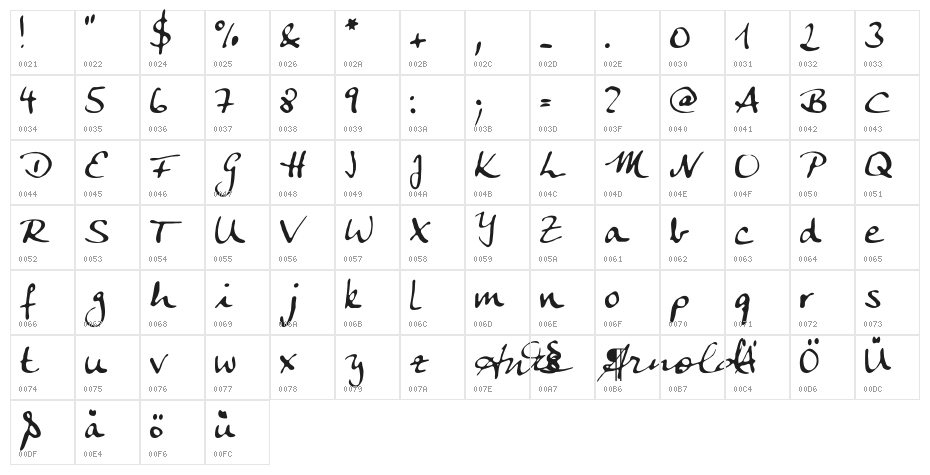 ! " $ % & * + , - . 0 1 2 3
0021 0022 0024 0025 0026 002A 002B 002C 002D 002E 0030 0031 0032 0033
4 5 6 7 8 9 : ; = ? @ A B C
0034 0035 0036 0037 0038 0039 003A 003B 003D 003F 0040 0041 0042 0043
D E F G H I J K L M N O P Q
0044 0045 0046 0047 0048 0049 004A 004B 004C 004D 004E 004F 0050 0051
R S T U V W X Y Z a b c d e
0052 0053 0054 0055 0056 0057 0058 0059 005A 0061 0062 0063 0064 0065
f g h i j k l m n o p q r s
0066 0067 0068 0069 006A 006B 006C 006D 006E 006F 0070 0071 0072 0073
t u v w x y z § ¶ Arnold Ä Ö Ü
0074 0075 0076 0077 0078 0079 007A 007E 00A7 00B6 00B7 00C4 00D6 00DC
ß ä ö ü
00DF 00E4 00F6 00FC